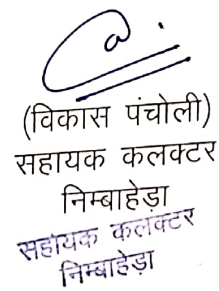 (विकास पंचोली)
सहायक कलक्टर
निम्बाहेड़ा
सहायक कलक्टर
निम्बाहेड़ा